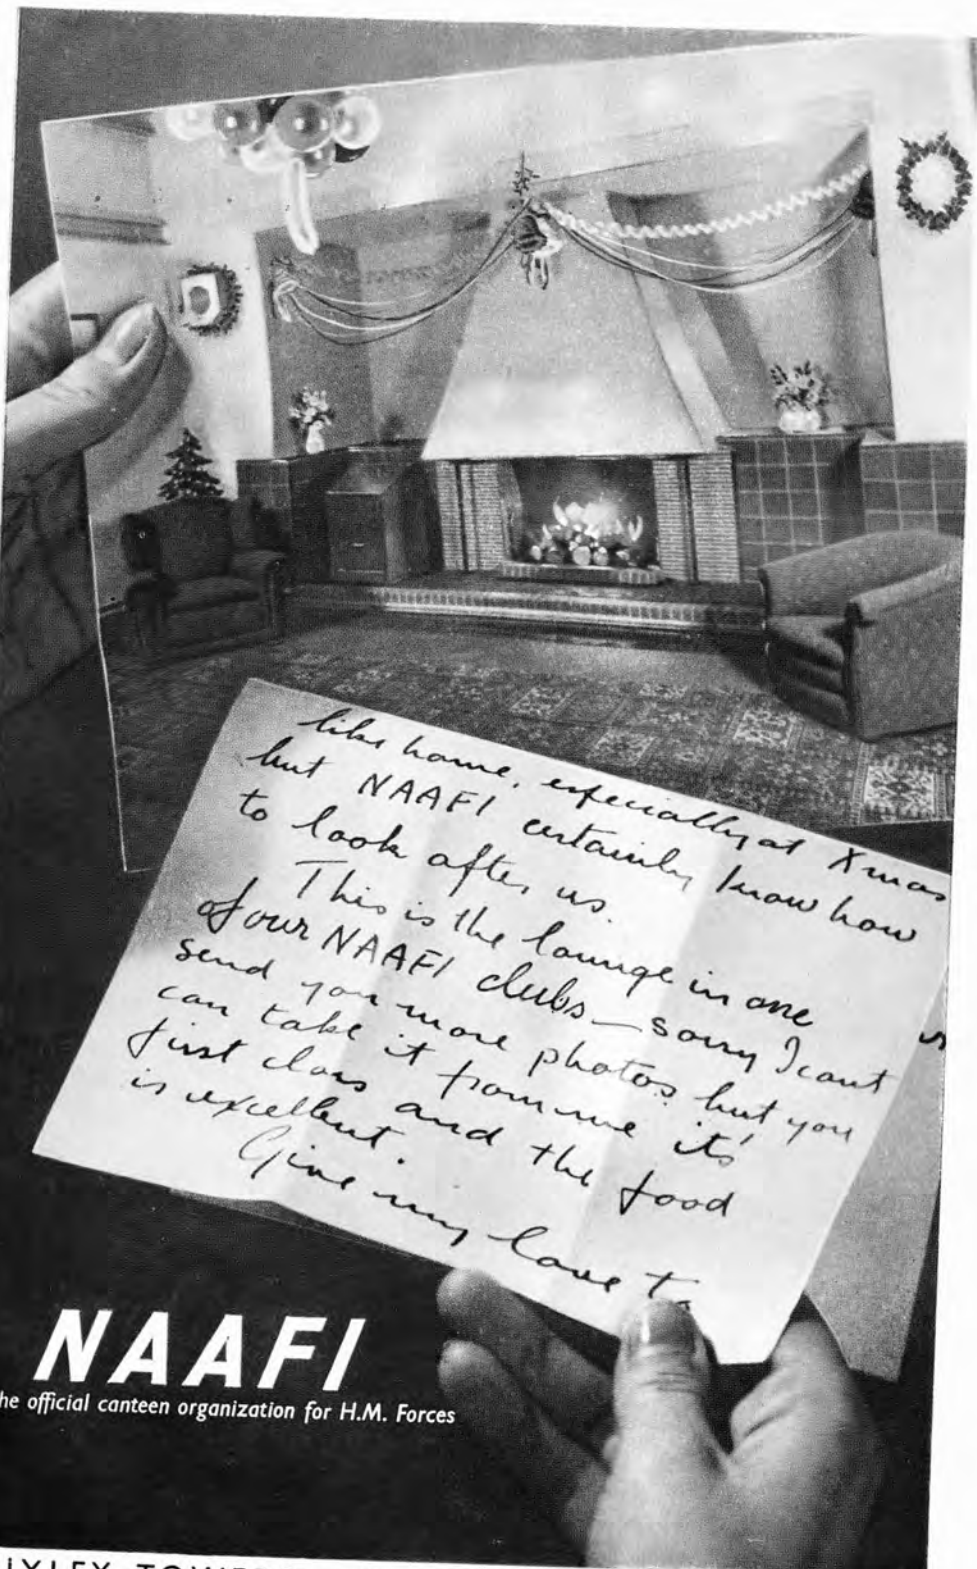 like home, especially at Xmas
but NAAFI certainly know how
to look after us.
This is the lounge in one
of our NAAFI clubs — sorry I cant
send you more photos but you
can take it from me it's
first class and the food
is excellent.
Give my love to
NAAFI
he official canteen organization for H.M. Forces